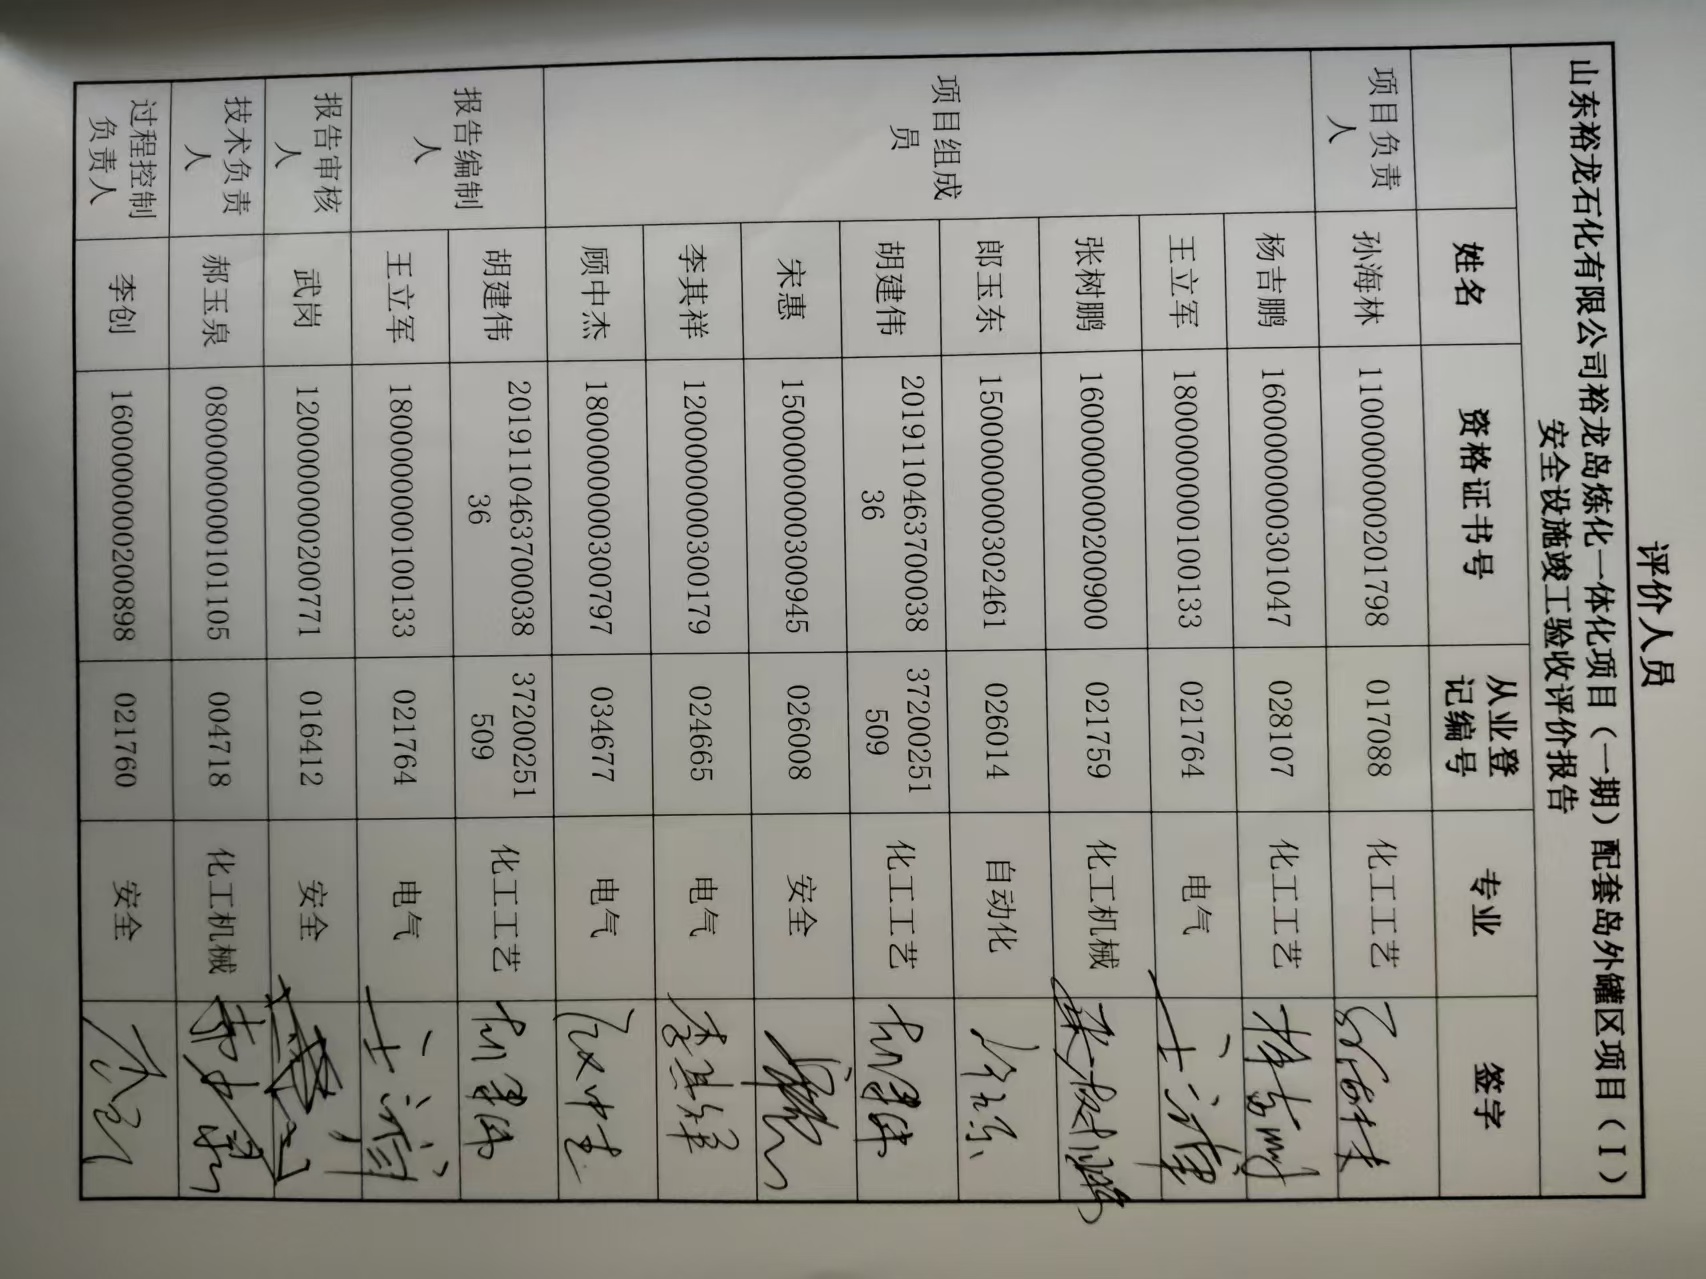 评价人员
山东裕龙石化有限公司裕龙岛炼化一体化项目（一期）配套岛外罐区项目（I）
安全设施竣工验收评价报告
姓名 资格证书号 从业登记编号 专业 签字
项目负责人 孙海林 1100000000201798 017088 化工工艺 孙海林
项目组成员 杨吉鹏 1600000000301047 028107 化工工艺 杨吉鹏
王立军 1800000000100133 021764 电气 王立军
张树鹏 1600000000200900 021759 化工机械 张树鹏
郎玉东 1500000000302461 026014 自动化
胡建伟 20191104637000038
36 37200251
509 化工工艺 胡建伟
宋惠 1500000000300945 026008 安全
李其祥 1200000000300179 024665 电气 李其祥
顾中杰 1800000000300797 034677 电气 顾中杰
报告编制人 胡建伟 20191104637000038
36 37200251
509 化工工艺 胡建伟
王立军 1800000000100133 021764 电气 王立军
报告审核人 武岗 1200000000200771 016412 安全
技术负责人 郝玉泉 0800000000101105 004718 化工机械
过程控制负责人 李创 1600000000200898 021760 安全